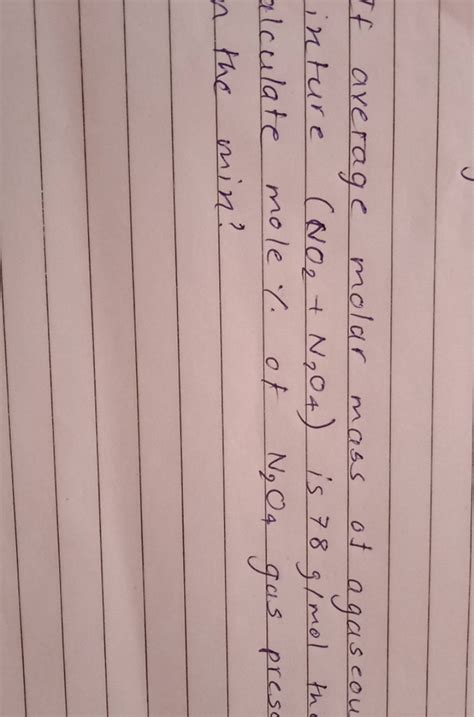 If average molar mass of a gaseou
inture (NO2 + N2O4) is 78 g/mol the
alculate mole % of N2O4 gas prese
n the min?